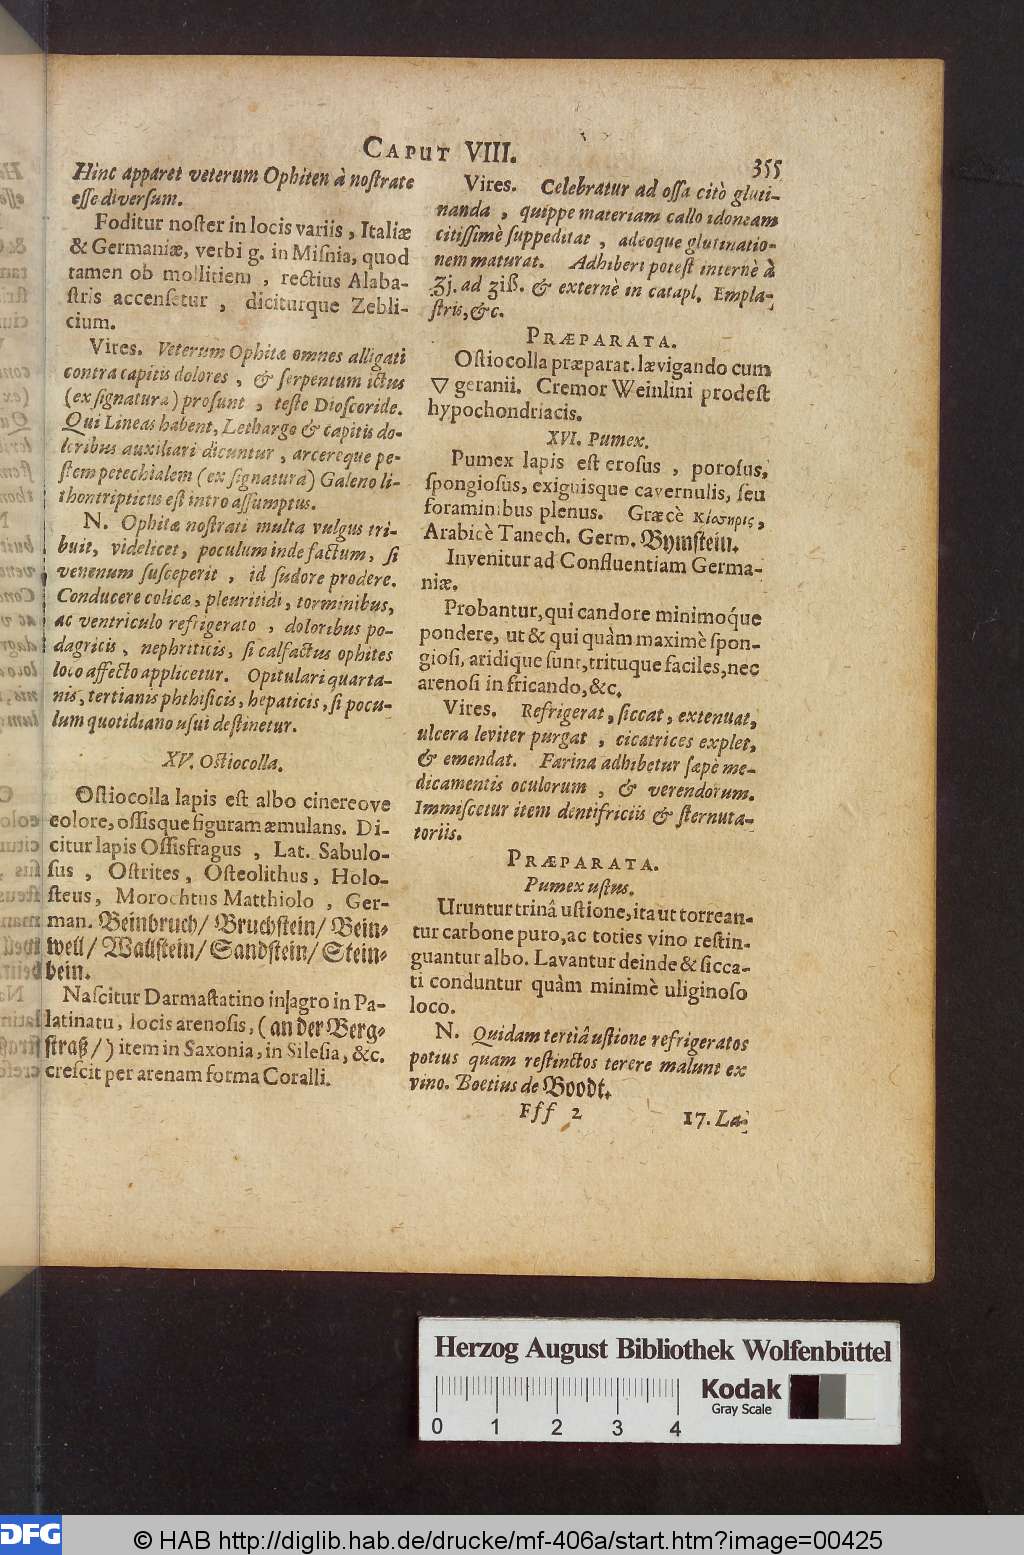 CAPUT VIII.
355
Hinc apparet veterum Ophiten à nostrate
esse diversum.
Foditur noster in locis variis, Italiæ
& Germaniæ, verbi g. in Misnia, quod
tamen ob mollitiem, rectius Alaba-
stris accensetur, diciturque Zebli-
cium.
Vires. Veterum Ophitæ omnes alligati
contra capitis dolores, & serpentum ictus
(ex signatura) prosunt, teste Dioscoride.
Qui Lineas habent, Lethargo & capitis do-
loribus auxiliari dicuntur, arcereque pe-
stem petechialem (ex signatura) Galeno li-
thontripticus est intro assumptus.
N. Ophitæ nostrati multa vulgus tri-
buit, videlicet, poculum inde factum, si
venenum susceperit, id sudore prodere.
Conducere colicæ, pleuritidi, torminibus,
ac ventriculo refrigerato, doloribus po-
dagricis, nephriticis, si calfactus ophites
loco affecto applicetur. Opitulari quarta-
nis, tertianis phthisicis, hepaticis, si pocu-
lum quotidiano usui destinetur.
XV. Ostiocolla.
Ostiocolla lapis est albo cinereove
colore, ossisque figuram æmulans. Di-
citur lapis Ossisfragus, Lat. Sabulo-
sus, Ostrites, Osteolithus, Holo-
steus, Morochtus Matthiolo, Ger-
man. Beinbruch/ Bruchstein/ Bein-
well/ Wallstein/ Sandstein/ Stein-
bein.
Nascitur Darmstatino in agro in Pa-
latinatu, locis arenosis, (an der Berg-
straß/) item in Saxonia, in Silesia, &c.
crescit per arenam forma Coralli.
Vires. Celebratur ad ossa citò gluti-
nanda, quippe materiam callo idoneam
citissimè suppeditat, adeoque glutinatio-
nem maturat. Adhiberi potest internè à
ʒj. ad ʒiß. & externè in catapl. Empla-
stris, &c.
PRÆPARATA.
Ostiocolla præparat. lævigando cum
▽ geranii. Cremor Weinlini prodest
hypochondriacis.
XVI. Pumex.
Pumex lapis est erosus, porosus,
spongiosus, exiguisque cavernulis, seu
foraminibus plenus. Græcè Κίσσηρις,
Arabicè Tanech. Germ. Bymstein.
Invenitur ad Confluentiam Germa-
niæ.
Probantur, qui candore minimoq́ue
pondere, ut & qui quàm maximè spon-
giosi, aridique sunt, trituque faciles, nec
arenosi in fricando, &c.
Vires. Refrigerat, siccat, extenuat,
ulcera leviter purgat, cicatrices explet,
& emendat. Farina adhibetur sæpè me-
dicamentis oculorum, & verendorum.
Immiscetur item dentifriciis & sternuta-
toriis.
PRÆPARATA.
Pumex ustus.
Uruntur trinâ ustione, ita ut torrean-
tur carbone puro, ac toties vino restin-
guantur albo. Lavantur deinde & sicca-
ti conduntur quàm minimè uliginoso
loco.
N. Quidam tertiâ ustione refrigeratos
potius quam restinctos terere malunt ex
vino. Boetius de Boodt.
Fff 2
17. La-
Herzog August Bibliothek Wolfenbüttel
Kodak
Gray Scale
0 1 2 3 4
DFG
© HAB http://diglib.hab.de/drucke/mf-406a/start.htm?image=00425